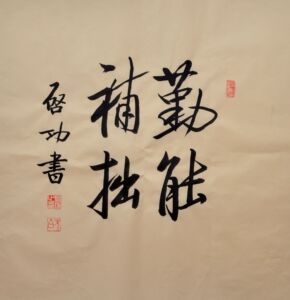 勤能
補拙
啓功書